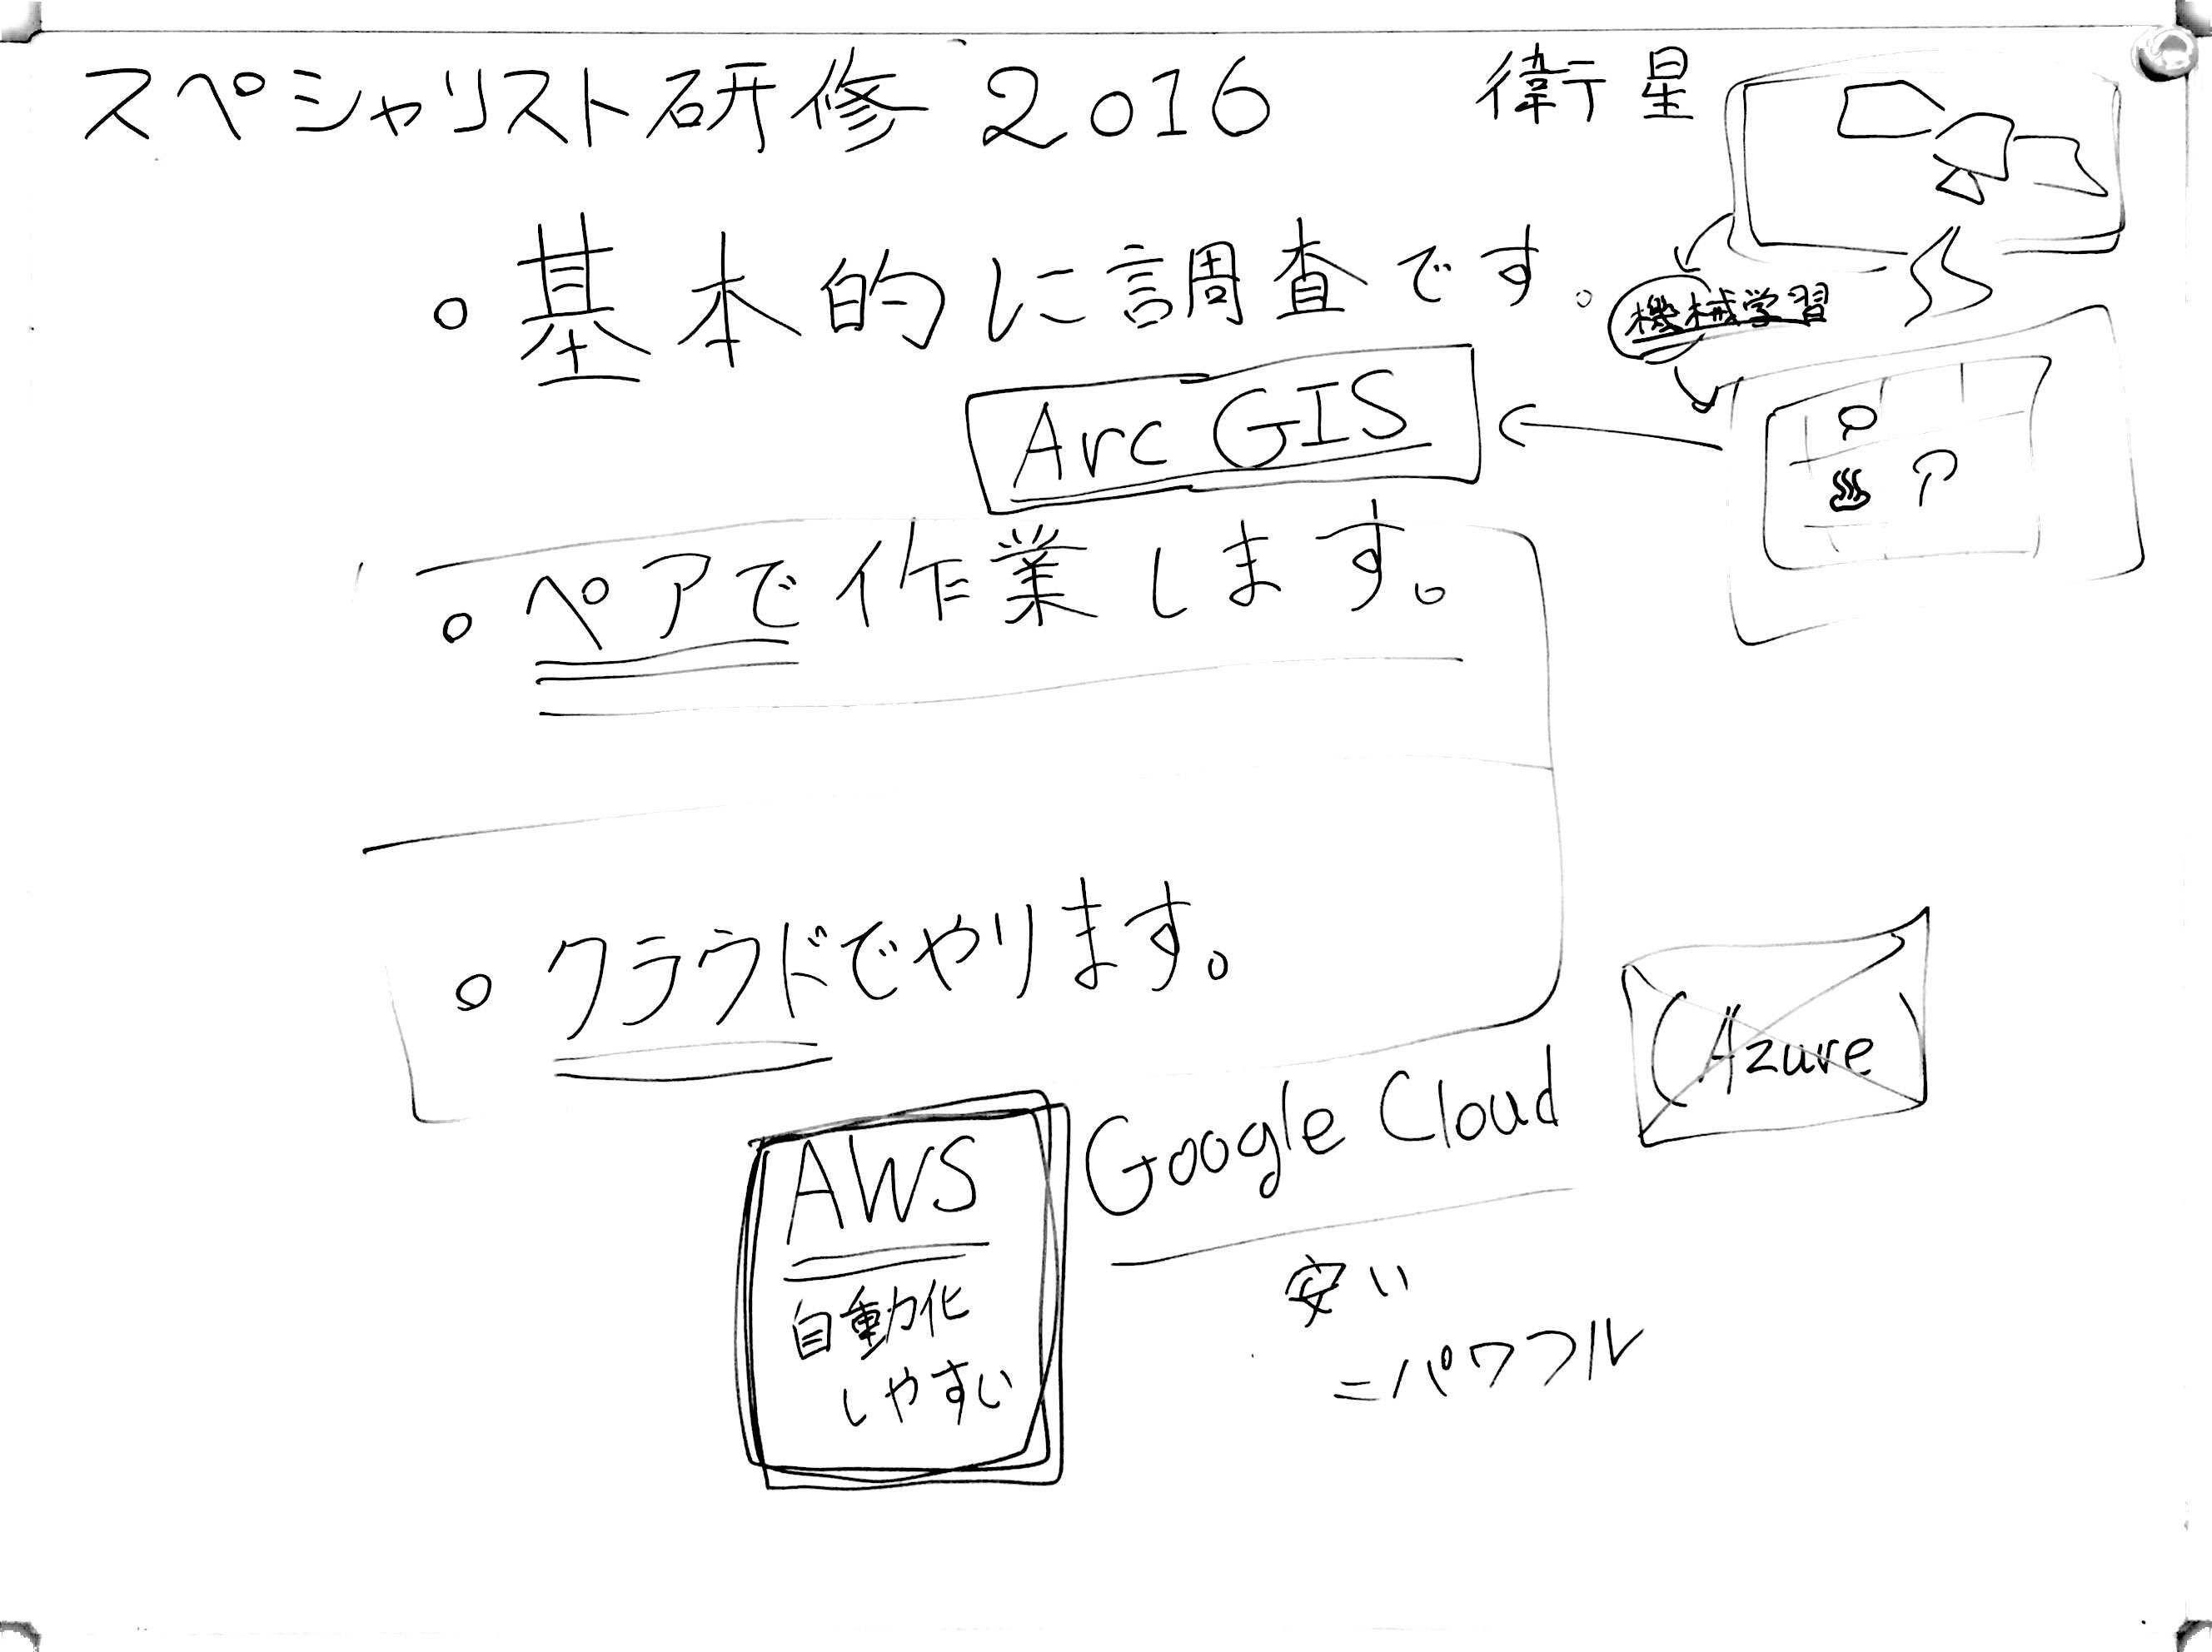 スペシャリスト研修 2016
衛星
。基本的に調査です。
機械学習
Arc GIS
。ペアで作業します。
。クラウドでやります。
AWS
自動化
しやすい
Google Cloud
安い
=パワフル
(Azure)